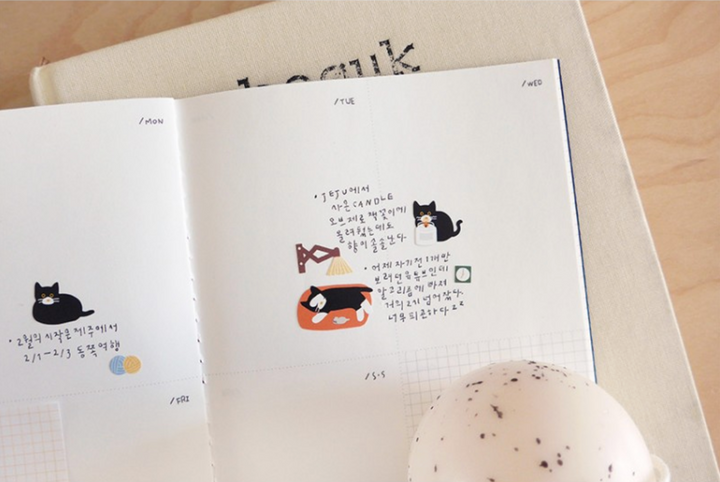 haguk
/MON
/TUE
/WED
• JEJU에서
사온 CANDLE
오브제로 책꽂이에
올려뒀는데도
향이 솔솔 난다.
• 어제 자기 전 1개만
보려던 유튜브인데
알고리즘에 빠져
거의 2시 넘어 잤다.
너무 피곤하다 ㅠㅠ
• 2월의 시작은 제주에서
2/1 - 2/3 동쪽 여행
/FRI
/S·S